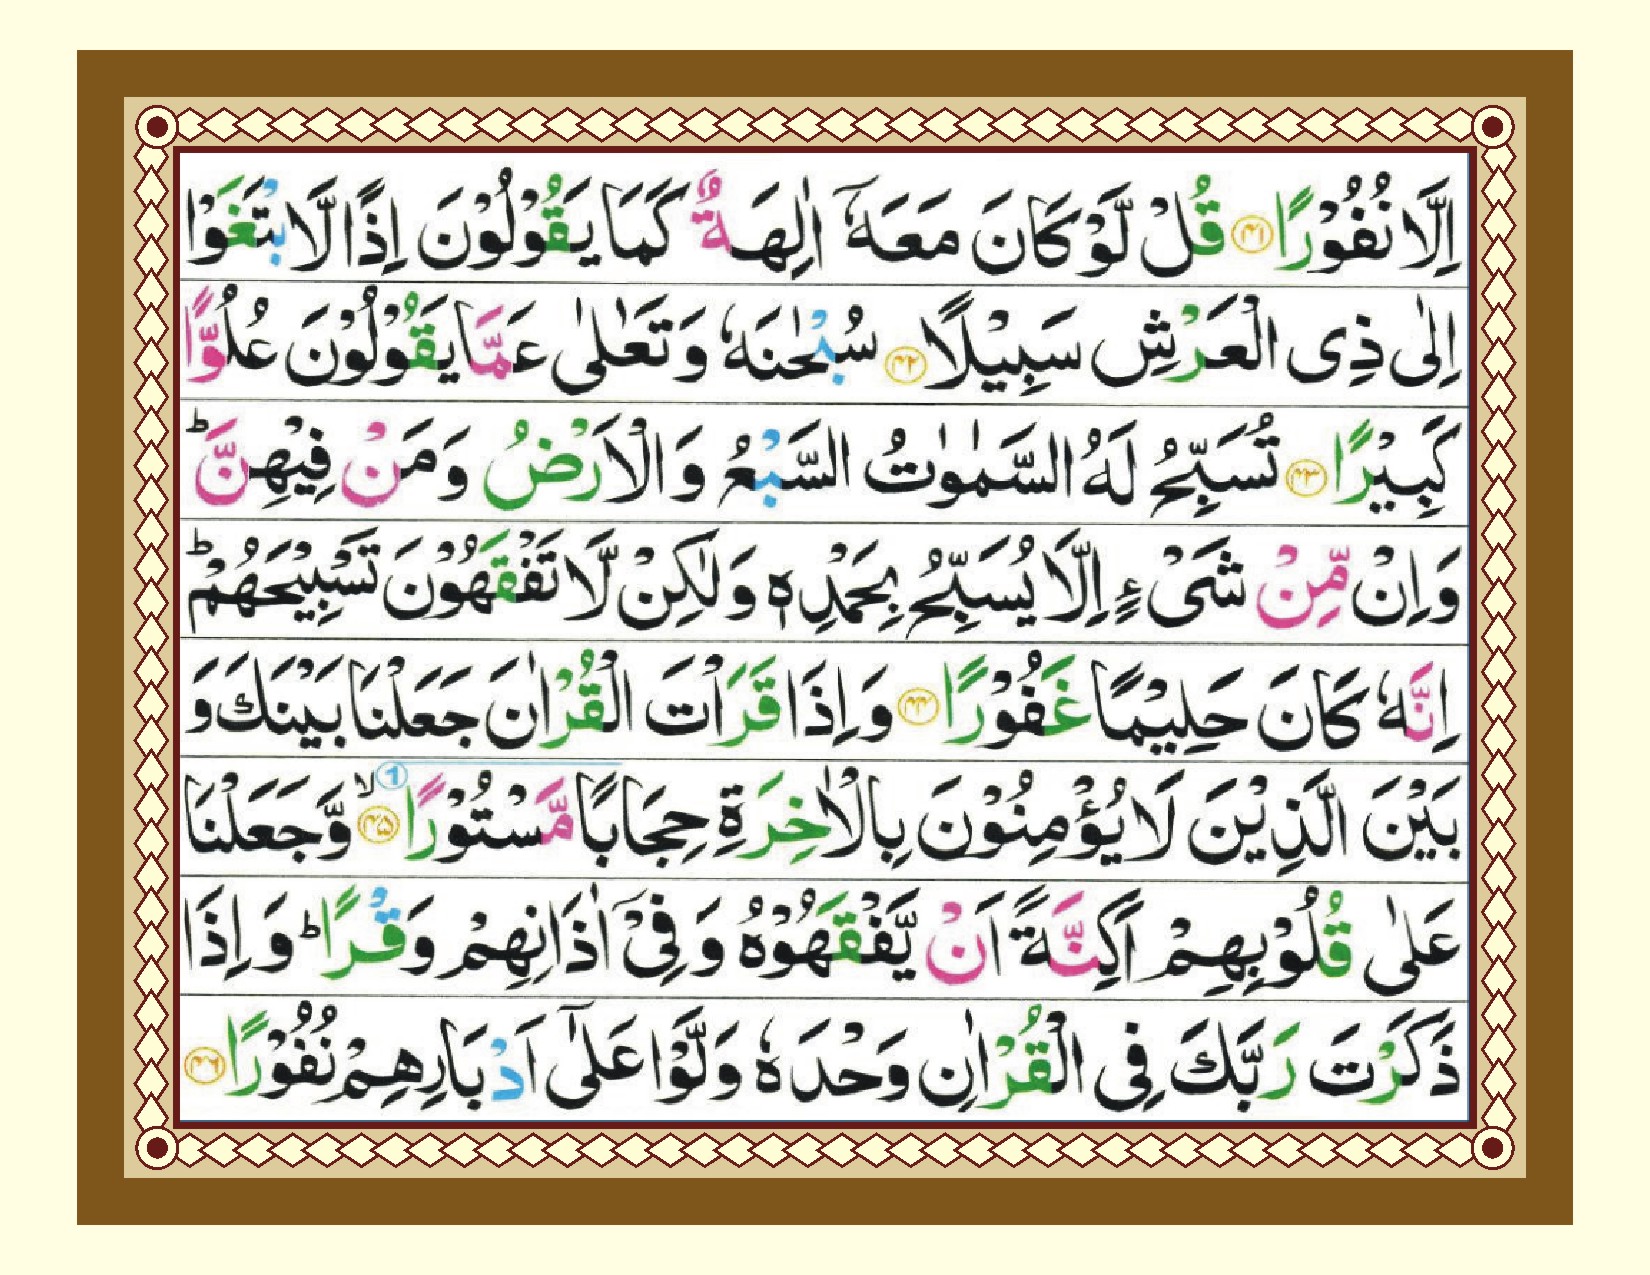 اِلَّا نُفُوْرًا ﴿۴۱﴾ قُلْ لَّوْ كَانَ مَعَهٗۤ اٰلِهَةٌ كَمَا يَقُوْلُوْنَ اِذًا لَّا بْتَغَوْا
اِلٰى ذِى الْعَرْشِ سَبِيْلًا ﴿۴۲﴾ سُبْحٰنَهٗ وَتَعٰلٰى عَمَّا يَقُوْلُوْنَ عُلُوًّا
كَبِيْرًا ﴿۴۳﴾ تُسَبِّحُ لَهُ السَّمٰوٰتُ السَّبْعُ وَالْاَرْضُ وَمَنْ فِيْهِنَّ ؕ
وَاِنْ مِّنْ شَىْءٍ اِلَّا يُسَبِّحُ بِحَمْدِهٖ وَلٰكِنْ لَّا تَفْقَهُوْنَ تَسْبِيْحَهُمْ ؕ
اِنَّهٗ كَانَ حَلِيْمًا غَفُوْرًا ﴿۴۴﴾ وَاِذَا قَرَاْتَ الْقُرْاٰنَ جَعَلْنَا بَيْنَكَ وَ
بَيْنَ الَّذِيْنَ لَا يُؤْمِنُوْنَ بِالْاٰخِرَةِ حِجَابًا مَّسْتُوْرًا 1 ﴿۴۵﴾ ۙ وَّجَعَلْنَا
عَلٰى قُلُوْبِهِمْ اَكِنَّةً اَنْ يَّفْقَهُوْهُ وَفِىْۤ اٰذَانِهِمْ وَقْرًا ؕ وَاِذَا
ذَكَرْتَ رَبَّكَ فِى الْقُرْاٰنِ وَحْدَهٗ وَلَّوْا عَلٰٓى اَدْبَارِهِمْ نُفُوْرًا ﴿۴۶﴾